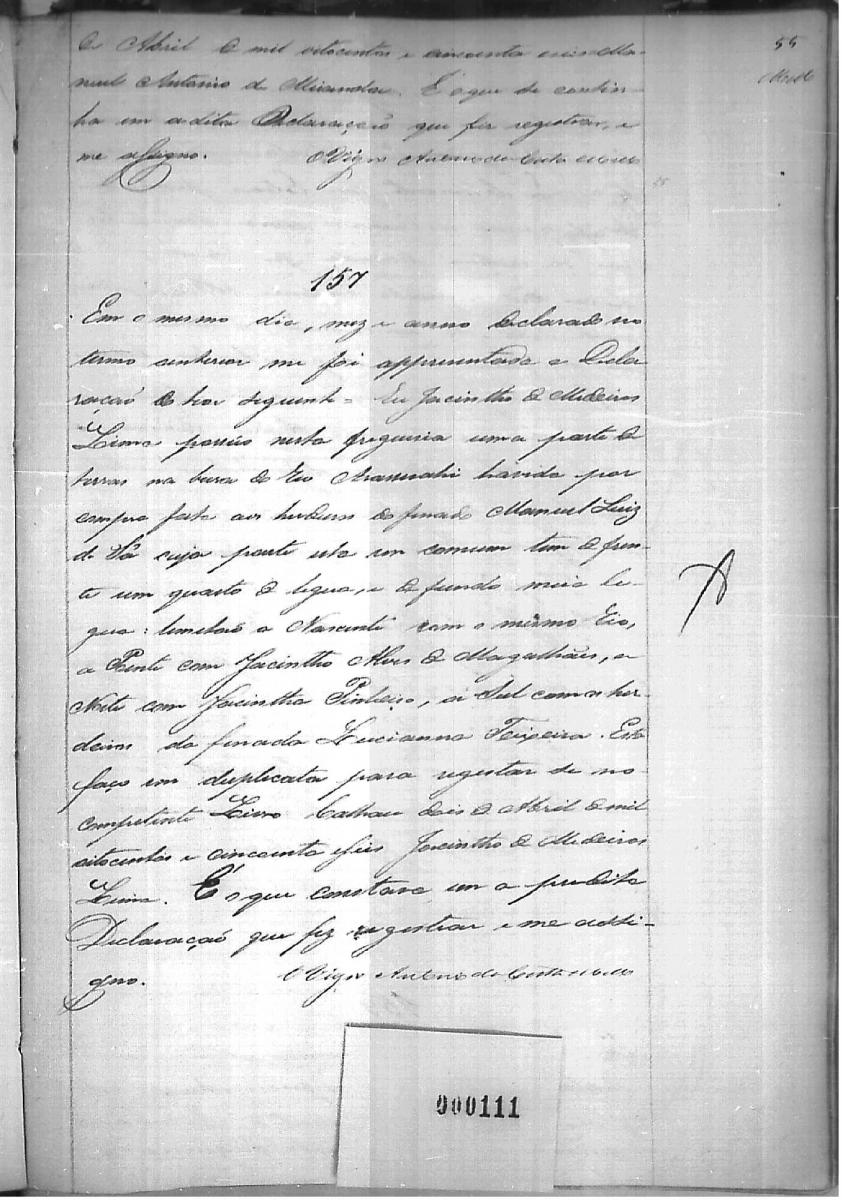 55
Mello
de Abril de mil oitocentos e cincoenta e seis Ma-
noel Antonio de Miranda. E o que se contin-
ha em a dita Declaração que fiz registrar, e
me assigno. O Vigro Antonio da Costa e Mello
157
Em o mesmo dia, mez e anno declarado no
termo anterior me foi appresentada a Decla-
ração do teor seguinte = Eu Jacintho de Medeiros
Lima possuo nesta freguesia uma parte de
terras na beira do Rio havida por
compra feita aos herdeiros do finado Manuel Luiz
de Sá cuja parte esta em comum tem de fren-
te um quarto de legua, e de fundo meia le-
gua: limitaõ a Nascente com o mesmo Rio,
a Poente com Jacintho Alves de Magalhães, a
Norte com Jacintha Pinheiro, ai Sul com os her-
deiros da finada Lucianna Teixeira. Esta
faço em duplicata para registar se no
competente Livro Calhau seis de Abril de mil
oitocentos e cincoenta e seis Jacintho de Medeiros
Lima. E o que constava em a predita
Declaração que fiz registrar e me assi-
gno. O Vigro Antonio da Costa e Mello
000111